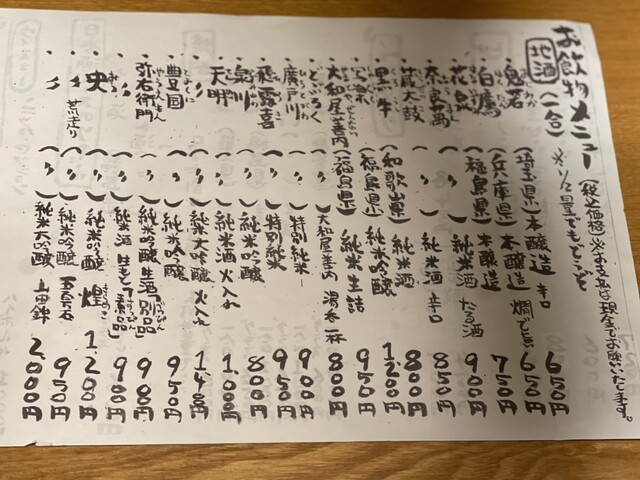 お飲物メニュー (税込価格) ※お支払は現金でお願いいたします。
地酒 (一合) ※1/2量でもどうぞ
鬼若 (埼玉県) 本醸造 辛口 650円
白鷹 (兵庫県) 本醸造 燗で 650円
花泉 (福島県) 本醸造 750円
〃 (〃) 純米酒 たる酒 900円
奈良萬 (〃) 純米酒 辛口 850円
蔵太鼓 (〃) 純米酒 800円
黒牛 (和歌山県) 純米吟醸 1,200円
写楽 (福島県) 純米生詰 950円
大和屋善内 (福島県) 大和屋善内 湯呑一杯 800円
どぶろく
廣戸川 (〃) 特別純米 900円
飛露喜 (〃) 特別純米 950円
泉川 (〃) 純米吟醸 800円
天明 (〃) 純米酒 火入れ 1,000円
〃 (〃) 純米大吟醸 火入れ 1,480円
豊国 (〃) 純米吟醸 950円
弥右衛門 (〃) 純米吟醸生酒 「別品」 980円
〃 (〃) 純米酒 生もと 「素品」 900円
央 (〃) 純米吟醸 煌 1,200円
〃 荒走り (〃) 純米吟醸 五百石 950円
〃 (〃) 純米大吟醸 山田錦 2,000円